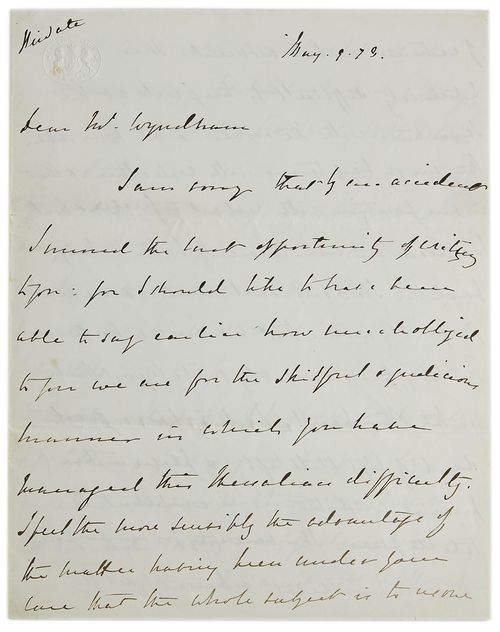 Private
May. 9. 73.
Dear Mr. Wyndham
I am sorry that by an accident
I missed the last opportunity of writing
to you: for I should like to have been
able to say earlier how much obliged
to you we are for the skilful & judicious
manner in which you have
managed this difficulty.
I feel the more sensibly the advantage of
the matter having been under your
care that the whole subject is to me one